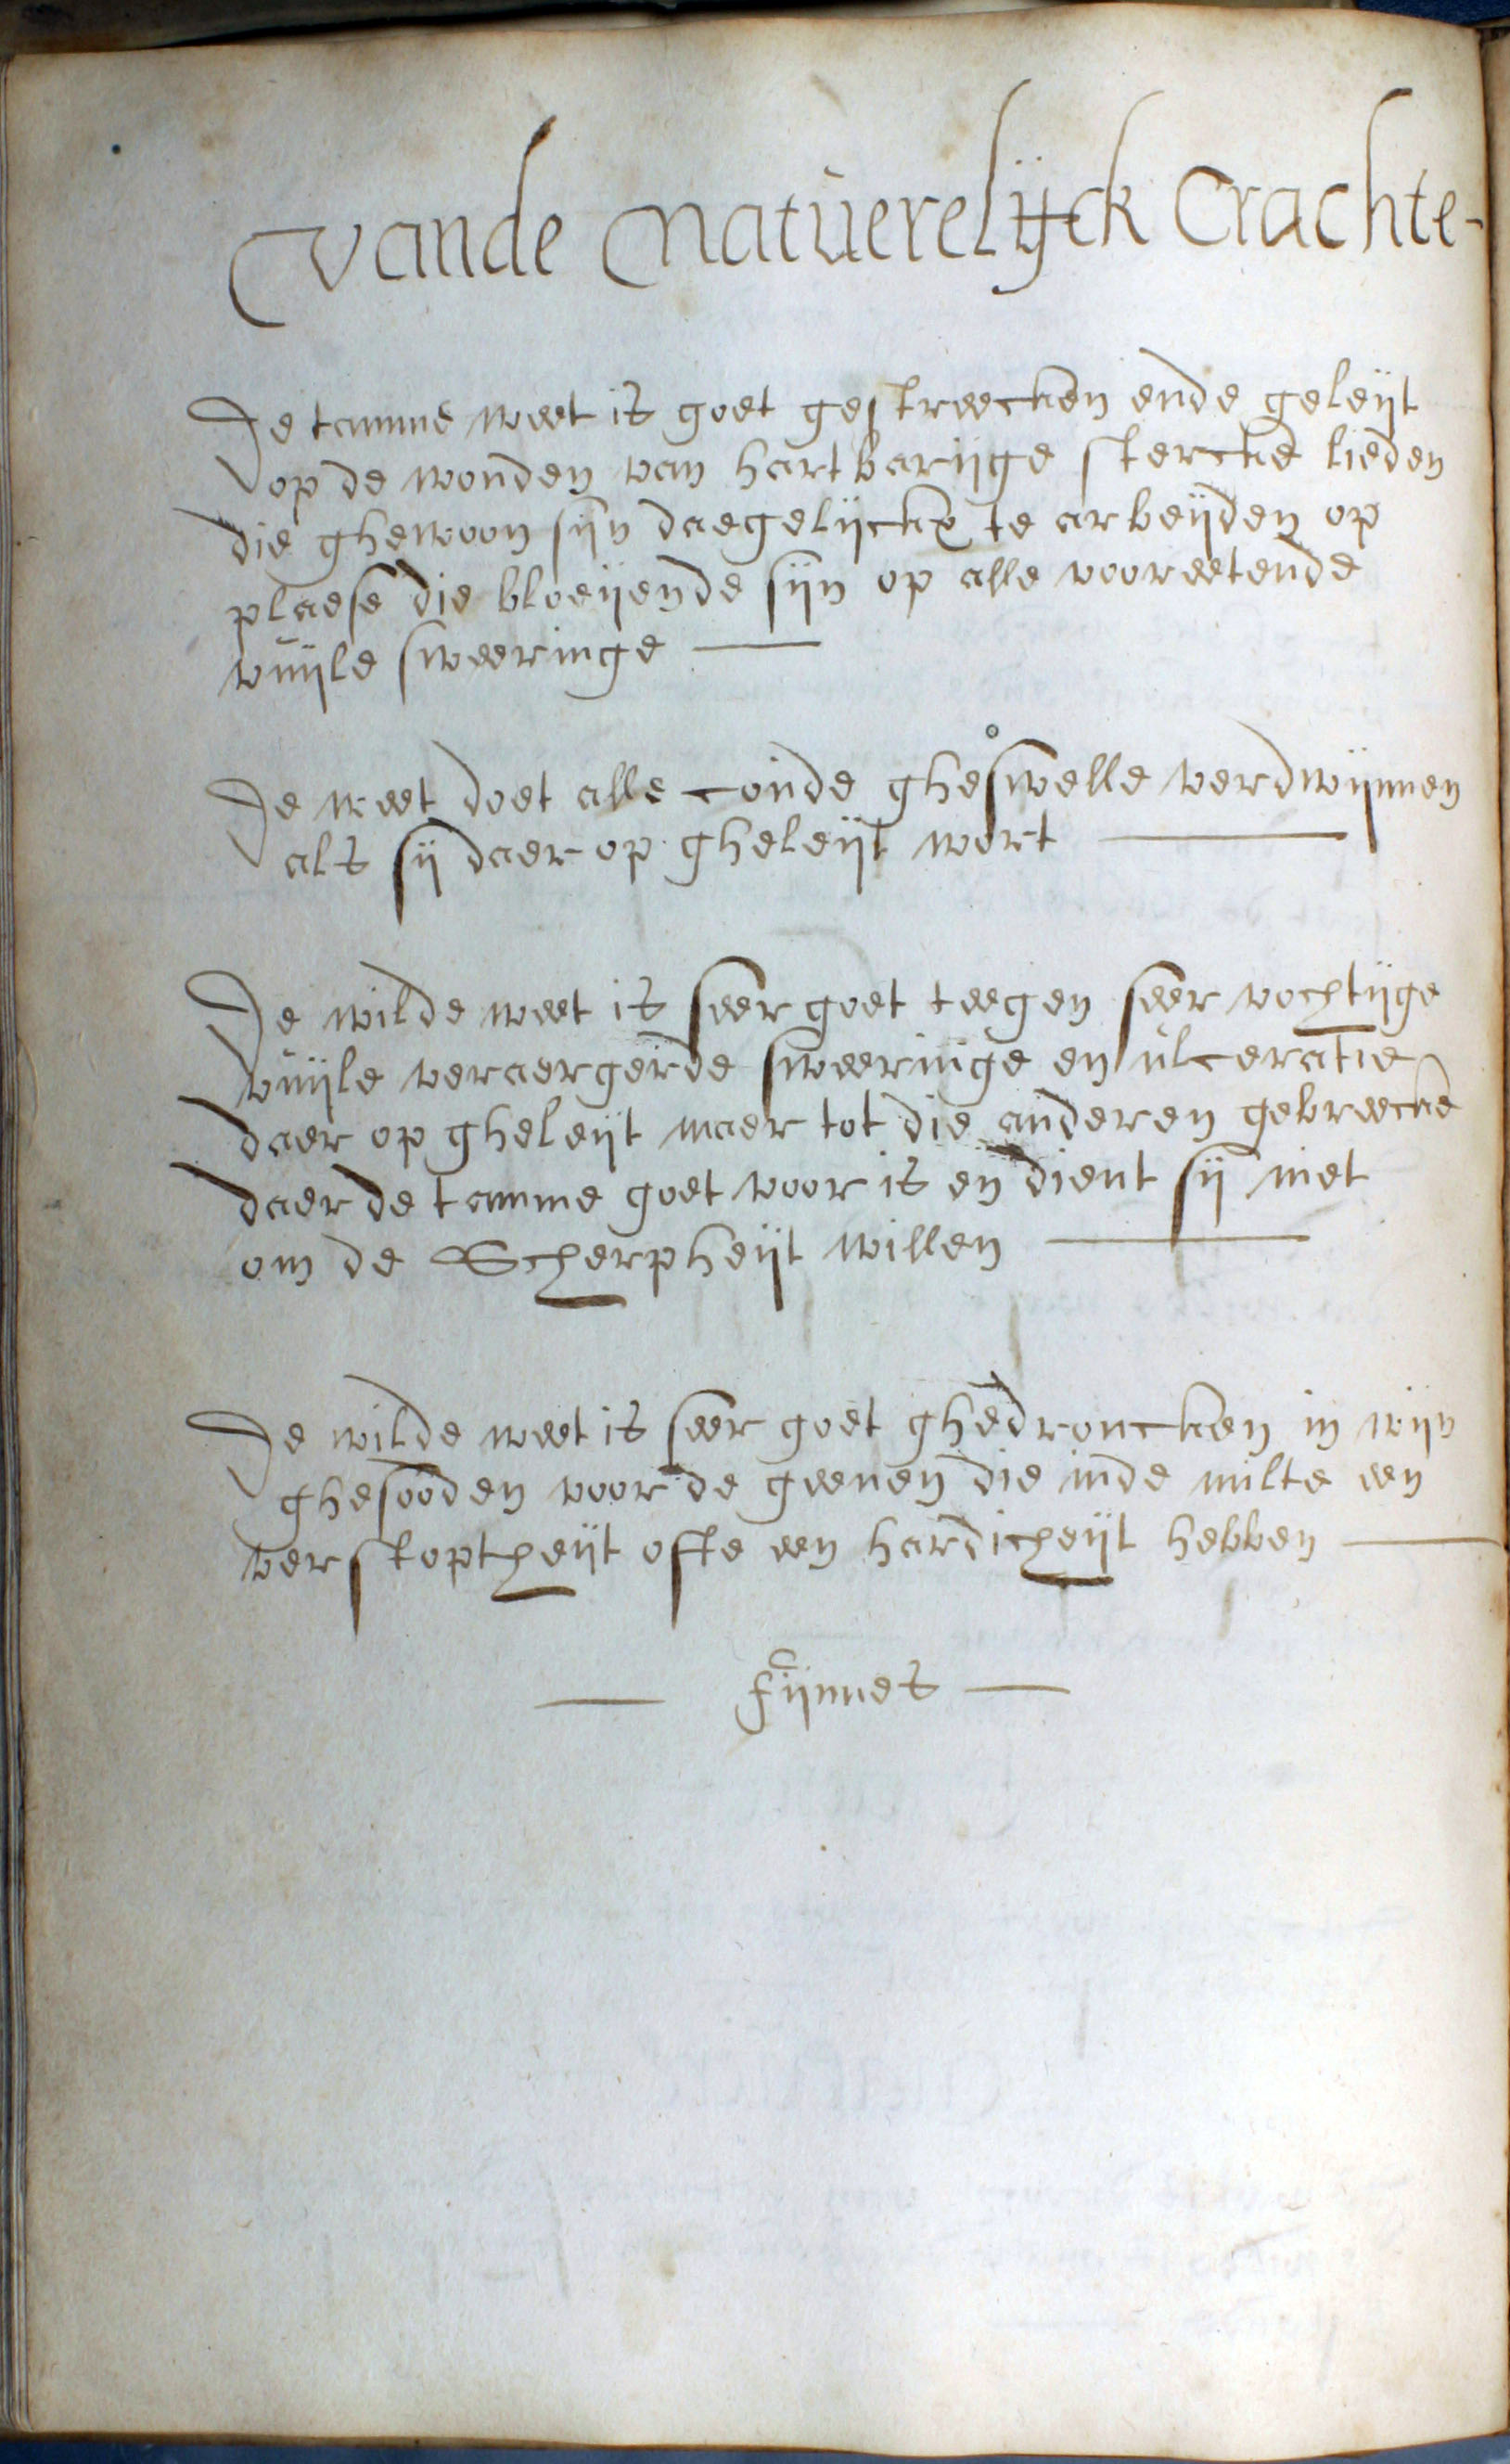 Vande Natuerelijck Crachte-
De tamme weet is goet gestreecken ende geleijt
op de wonden van hartbarijge stercke lieden
die ghewoon sijn daegelijckx te arbeijden op
plaese die bloeijende sijn op alle vooreetende
vuijle sweeringe
De weet doet alle coude gheswelle verdwijnnen
als sij daer op gheleijt wert
De wilde weet is seer goet teegen seer vochtijge
vuijle veraergerde sweeringe en ulceratie
daer op gheleijt maer tot die anderen gebreecke
daer de tamme goet voor is en dient sij niet
om de Scherpheijt willen
De wilde weet is seer goet ghedroncken in wijn
ghesooden voor de geenen die inde milte een
verstoptheijt ofte een hardicheijt hebben
Fijnnes